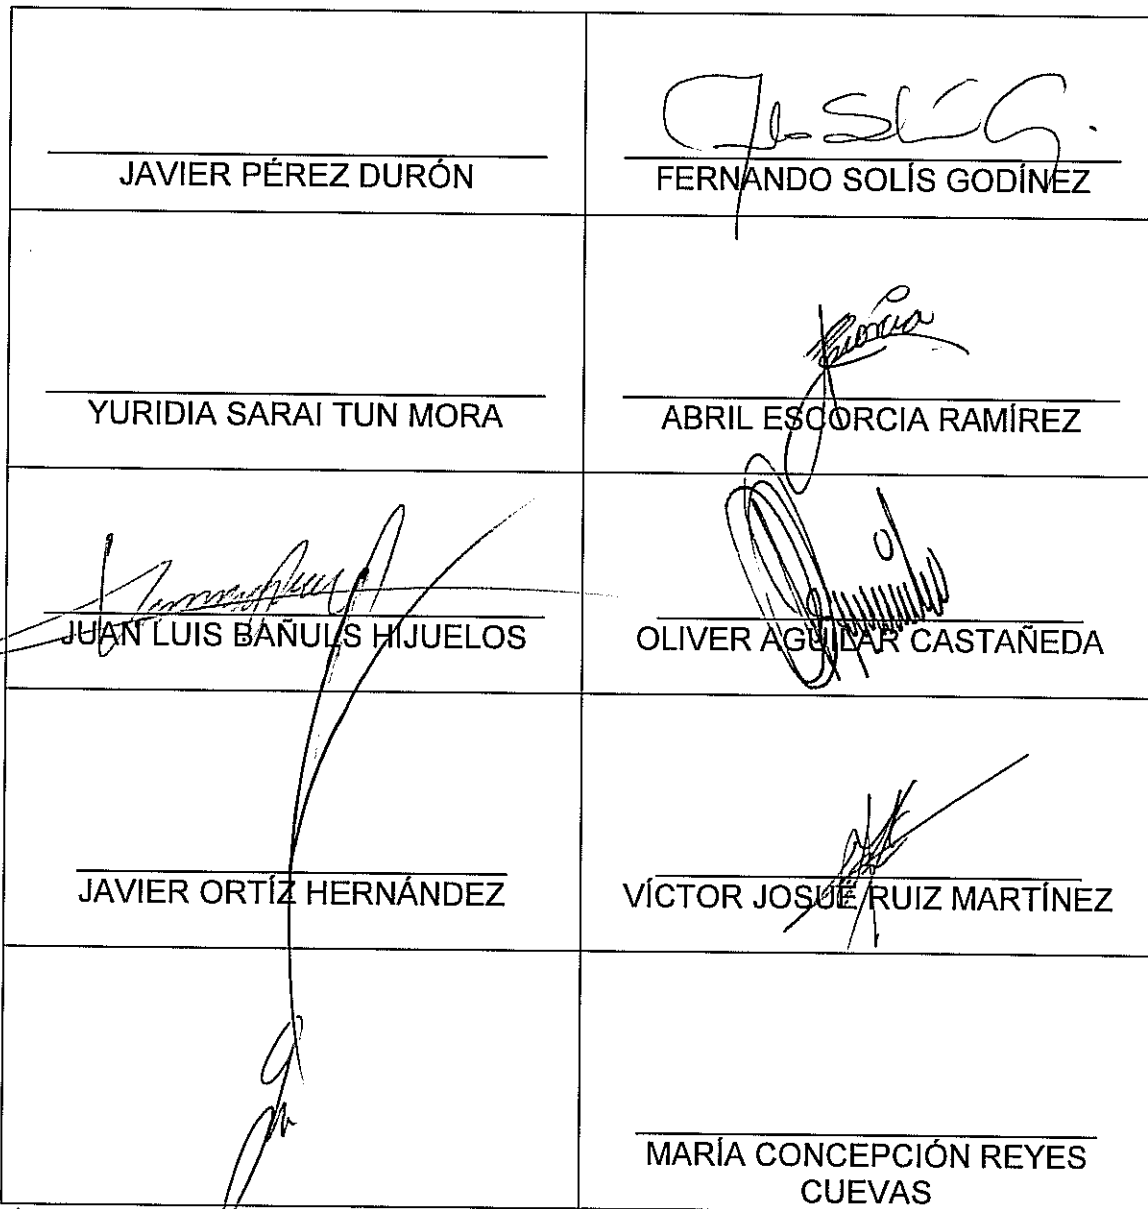 JAVIER PÉREZ DURÓN
FERNANDO SOLÍS GODÍNEZ
YURIDIA SARAI TUN MORA
ABRIL ESCORCIA RAMÍREZ
JUAN LUIS BAÑULS HIJUELOS
OLIVER AGUILAR CASTAÑEDA
JAVIER ORTÍZ HERNÁNDEZ
VÍCTOR JOSUÉ RUIZ MARTÍNEZ
MARÍA CONCEPCIÓN REYES
CUEVAS